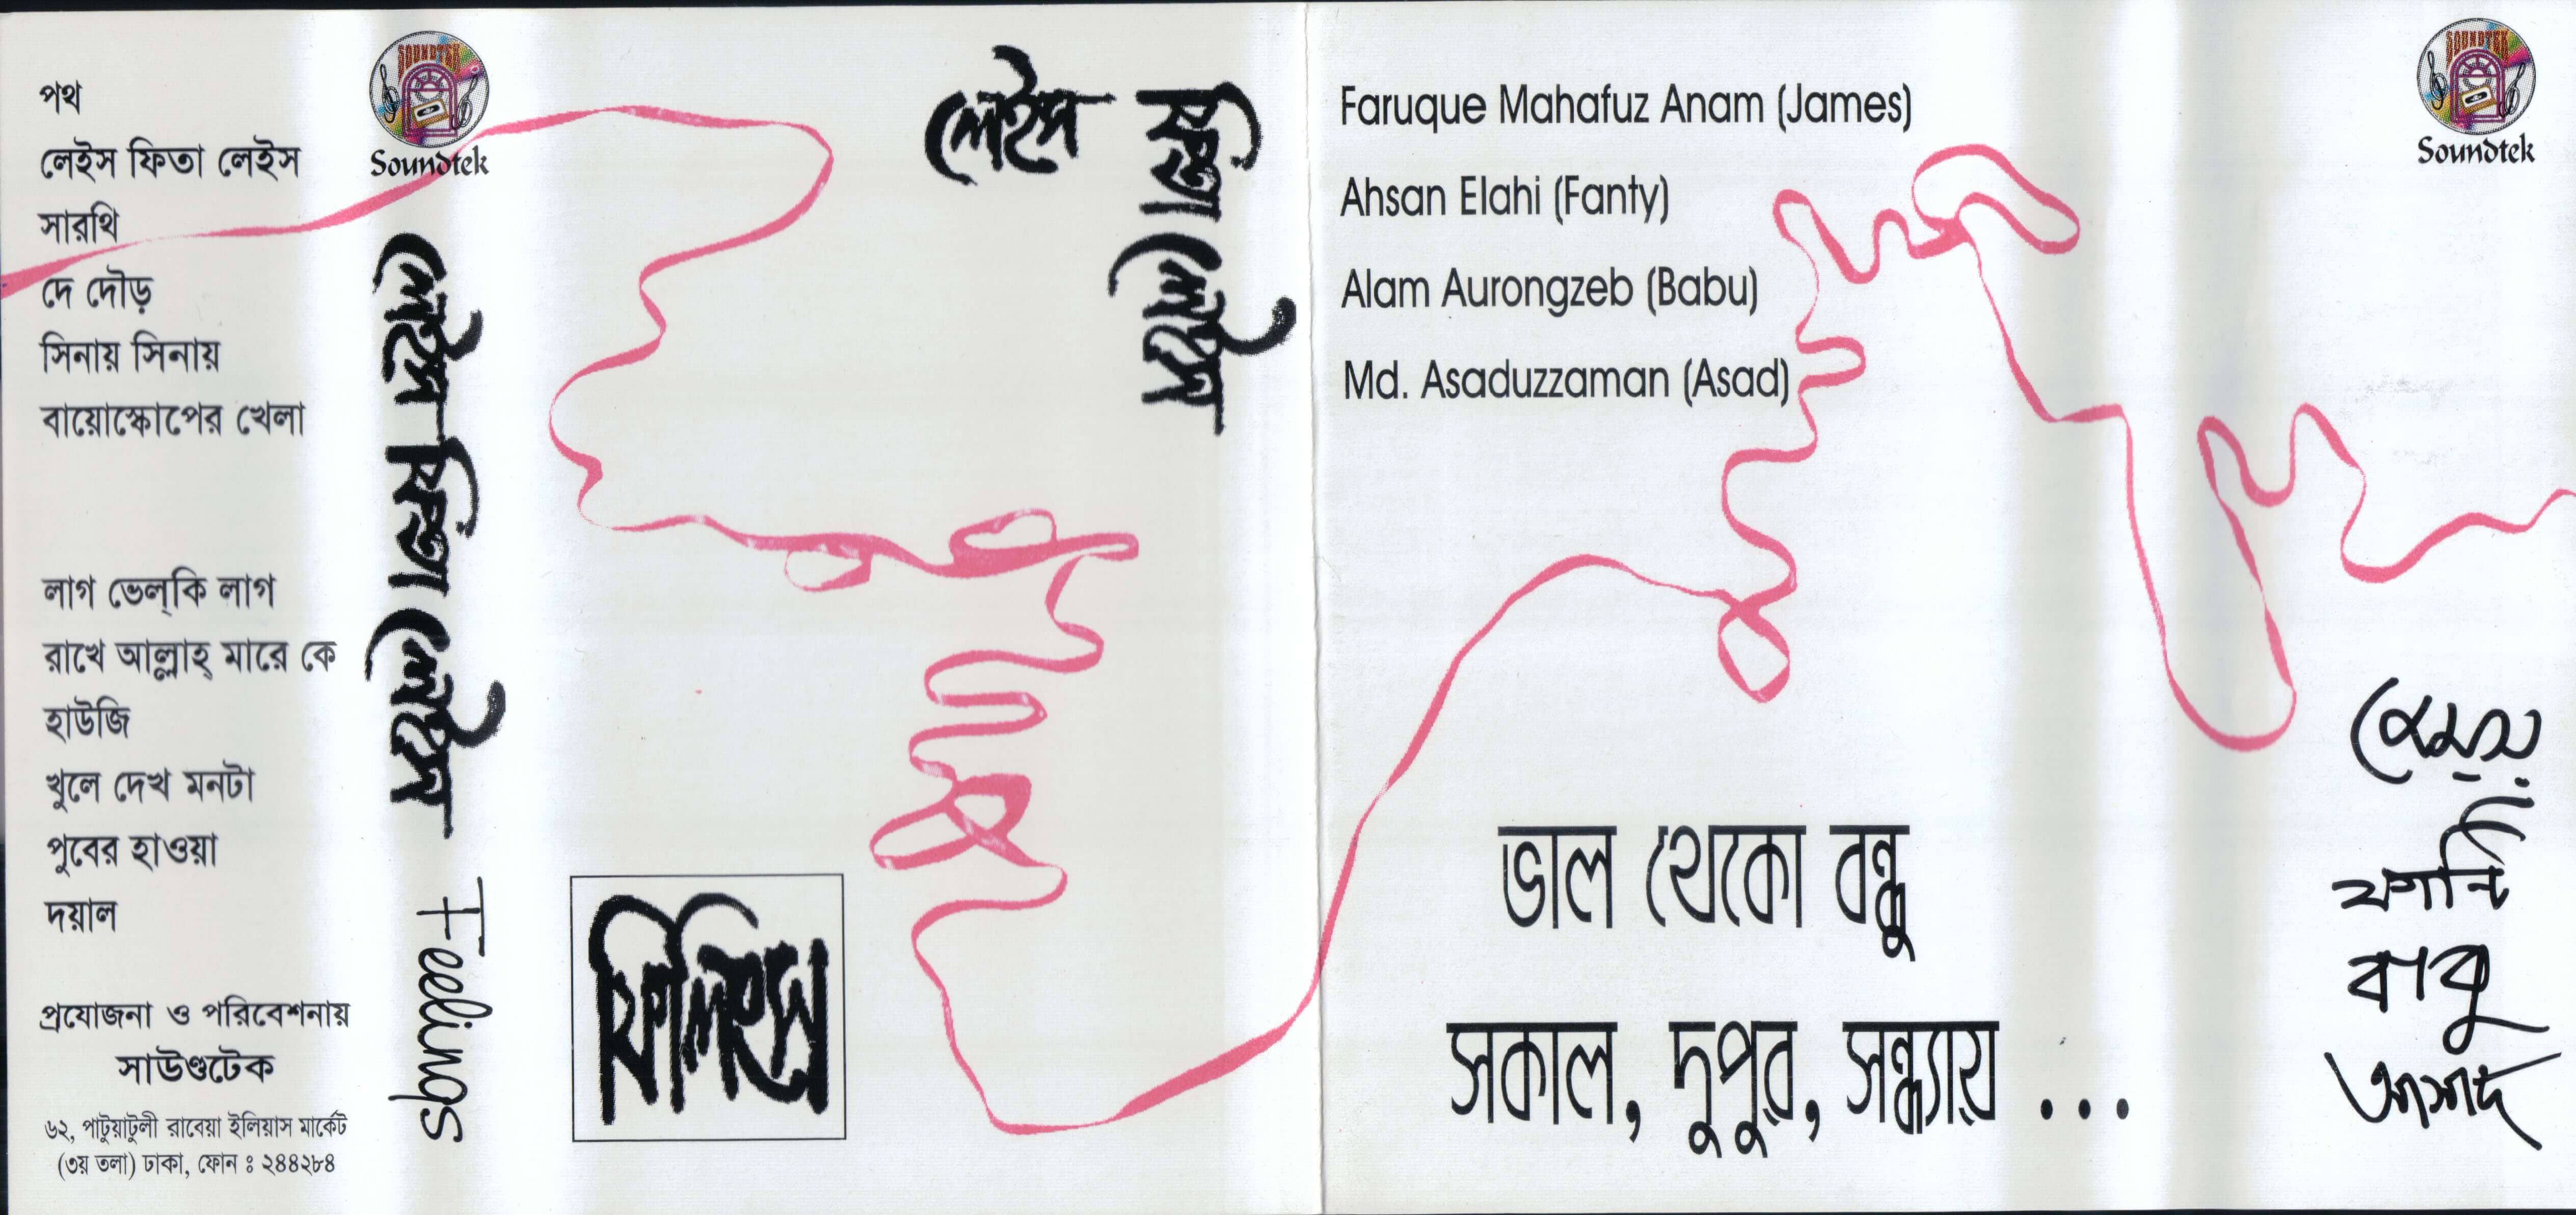 পথ
লেইস ফিতা লেইস
সারথি
দে দৌড়
সিনায় সিনায়
বায়োস্কোপের খেলা
লাগ ভেল্‌কি লাগ
রাখে আল্লাহ্ মারে কে
হাউজি
খুলে দেখ মনটা
পুবের হাওয়া
দয়াল
প্রযোজনা ও পরিবেশনায়
সাউণ্ডটেক
৬২, পাটুয়াটুলী রাবেয়া ইলিয়াস মার্কেট
(৩য় তলা) ঢাকা, ফোন ঃ ২৪৪২৮৪
SOUNDTEK
Soundtek
লেইস ফিতা লেইস Feelings
লেইস
ফিতা লেইস
ফিলিংস
Faruque Mahafuz Anam (James)
Ahsan Elahi (Fanty)
Alam Aurongzeb (Babu)
Md. Asaduzzaman (Asad)
ভাল থেকো বন্ধু
সকাল, দুপুর, সন্ধ্যায় ...
SOUNDTEK
Soundtek
জেমস
ফান্টি
বাবু
আসাদ